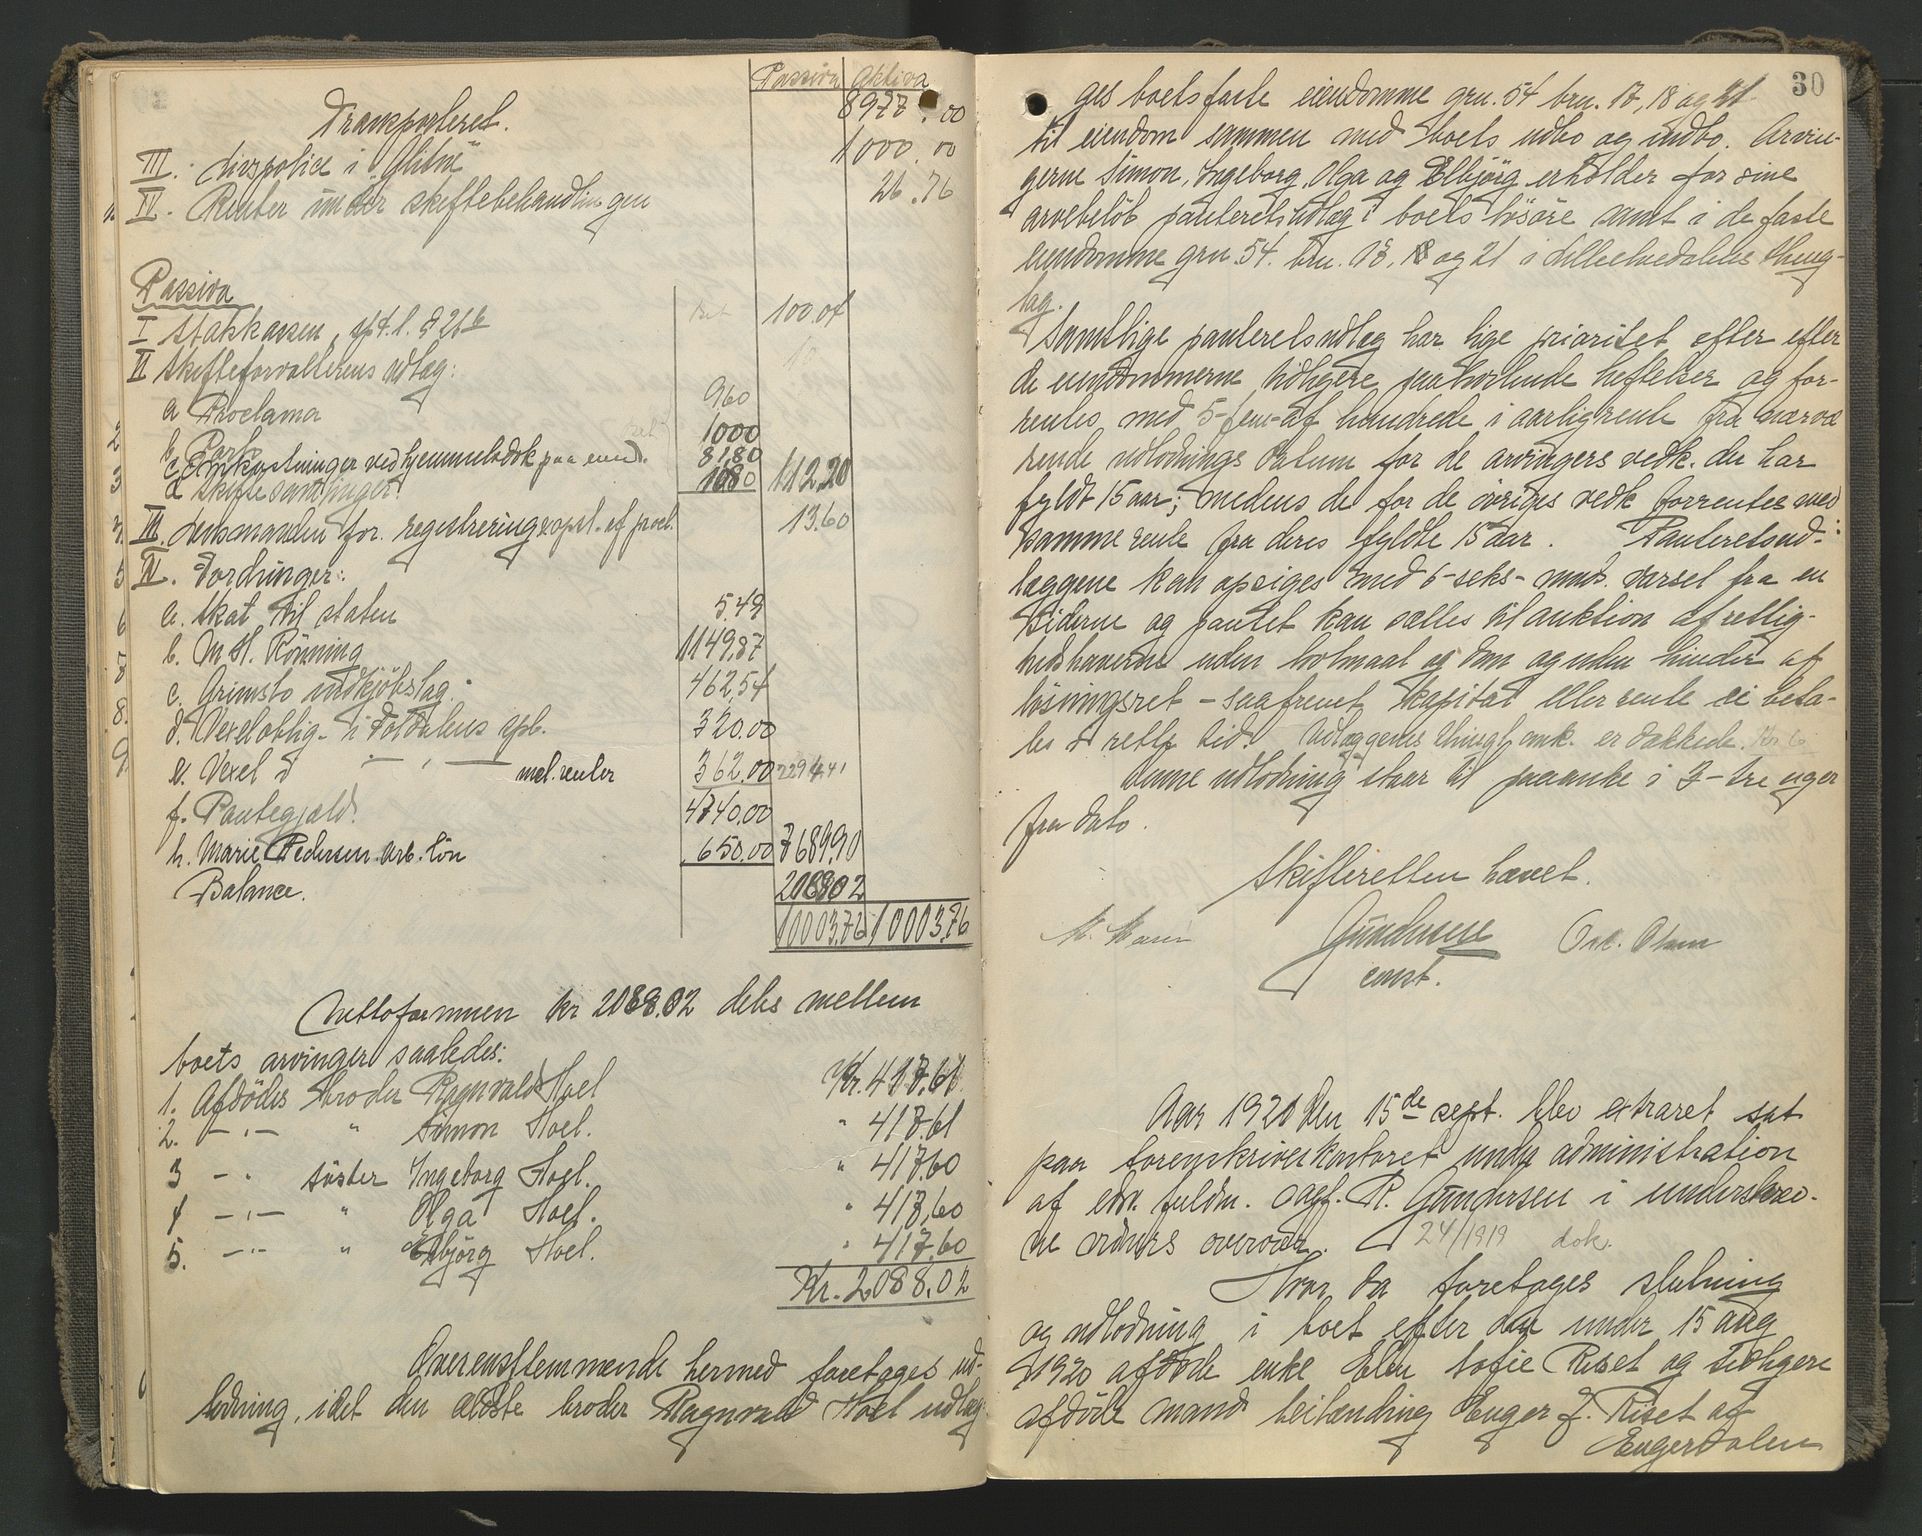 Passiva Aktiva
Transporteret. 8977.00
III. Livspolice i "Glitne" 1000.00
IV. Renter under skiftebehandlingen 26.76
Passiva
I Statskassen, 100.04
II Skifteforvalterens udlæg:
a Proclama 960
b. Porto 1000
c Omkostninger ved hjemmelsdok paa eiend. 81.80
d Skiftesamlinger 1080 112,20
III. Lensmanden for registrering opsl. af procl. 13.60
IV. Fordringer:
a. Skat til staten 5.49
b. M H. Rönning 1149,87
c. Grimsbo indkjöbslag. 462,54
d. Vexeloblig. i Foldalens spb. 320.00
e. Vexel i — " — mel. renter 362.00 2294.41
f. Pantegjæld. 4740.00
h. Marie Pedersen arb. lön 650.00 7689,90
Balance. 2088.02
10003,76 10003,76
Nettoformuen kr 2088.02 deles mellem
boets arvinger saaledes:
1. Afdödes broder Ragnvald Hoel Kr. 417.61
2. — " — " Simon Hoel. " 417.61
3 — " söster Ingeborg Hoel. " 417.60
4 — " — " Olga Hoel. " 417,60
5. — " — " Elbjörg Hoel. " 417.60
Kr. 2088.02
Overensstemmende hermed foretages ud-
lodning, idet den ældste broder Ragnvald Hoel udlæg-
30
ges boets faste eiendomme gru. 54 bru. 17, 18 og 21
til eiendom sammen med boets udbo og indbo. Arvin-
gerne Simon, Ingeborg, Olga og Elbjörg erholder for sine
arvebelöb panteretsudlæg i boets lösöre samt i de faste
eiendomme gru. 54. bru. 17, 18 og 21 i Lilleelvedalens thing-
lag.
Samtlige panteretsudlæg har lige prioritet efter efter
de eiendommerne tidligere paahvilende heftelser og for-
rentes med 5-fem-af hundrede i aarlig rente fra nærvæ
rende udlodnings datum for de arvingers vedk. der har
fyldt 15 aar; medens de for de övriges vedk forrentes med
samme rente fra deres fyldte 15 aar. Panteretsud-
læggene kan opsiges med 6-seks- mnds. varsel fra en
Siderne og pantet kan sættes til auktion af rettig-
hedshaverne uden lovmaal og dom og uden hinder af
lösningsret - saafremt kapital eller rente ei beta-
les i rette tid. Udlæggenes thingl. omk. er dækkede. Kr 6
Denne udlodning staar til paaanke i 3-tre uger
fra dato.
Skifteretten hævet.
Gundersen Osk. Olsen
const.
Aar 1920 den 15de sept. blev extraret sat
paa sorenskriverkontoret under administration
af edv. fuldm. sagf. R. Gundersen i underskrev-
ne vidners overvær. 24/1919 dok.
Hvor da foretoges slutning
og udlodning i boet efter den under 15 aug
1920 afdöde enke Elen Sofie Riset og tidligere
afdöde mand leilænding Enger J. Riset af
Engerdalen